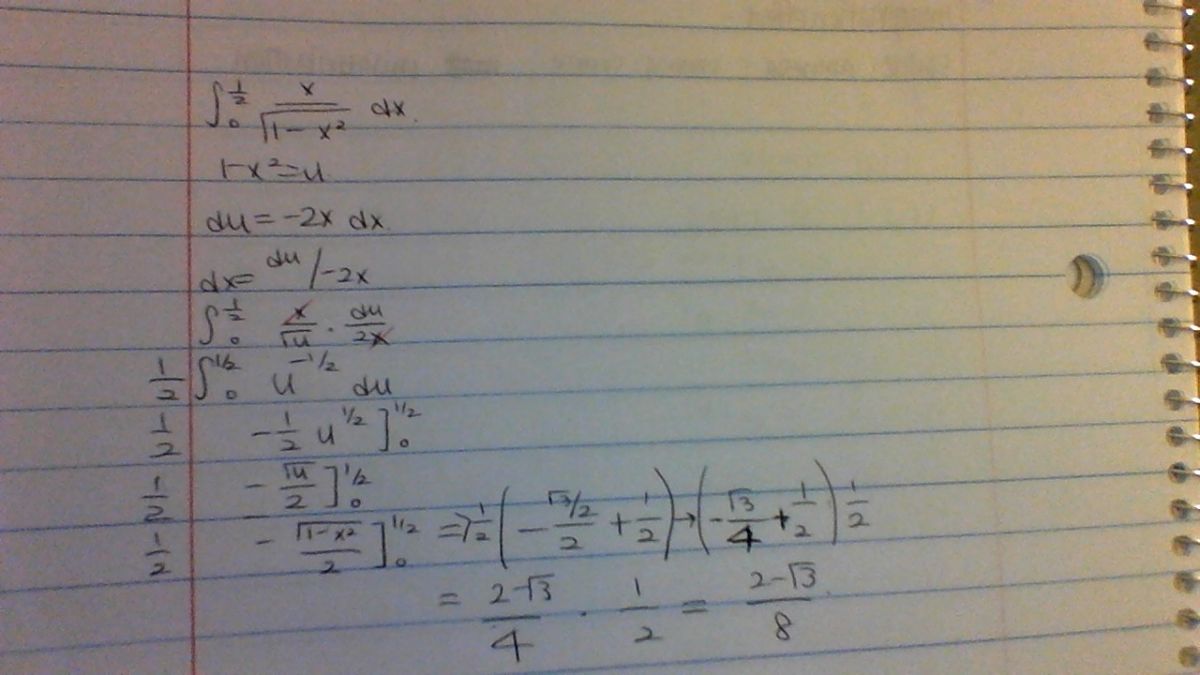 ∫₀^{1/2} x/√(1-x²) dx.
1-x²=u
du = -2x dx.
dx= du/-2x
∫₀^{1/2} x/√u · du/2x
1/2 ∫₀^{1/2} u^{-1/2} du
1/2 -1/2 u^{1/2} ]₀^{1/2}
1/2 - √u/2 ]₀^{1/2}
1/2 - √(1-x²)/2 ]₀^{1/2} => 1/2 (- (√3/2)/2 + 1/2) → (-√3/4 + 1/2) 1/2
= (2-√3)/4 · 1/2 = (2-√3)/8